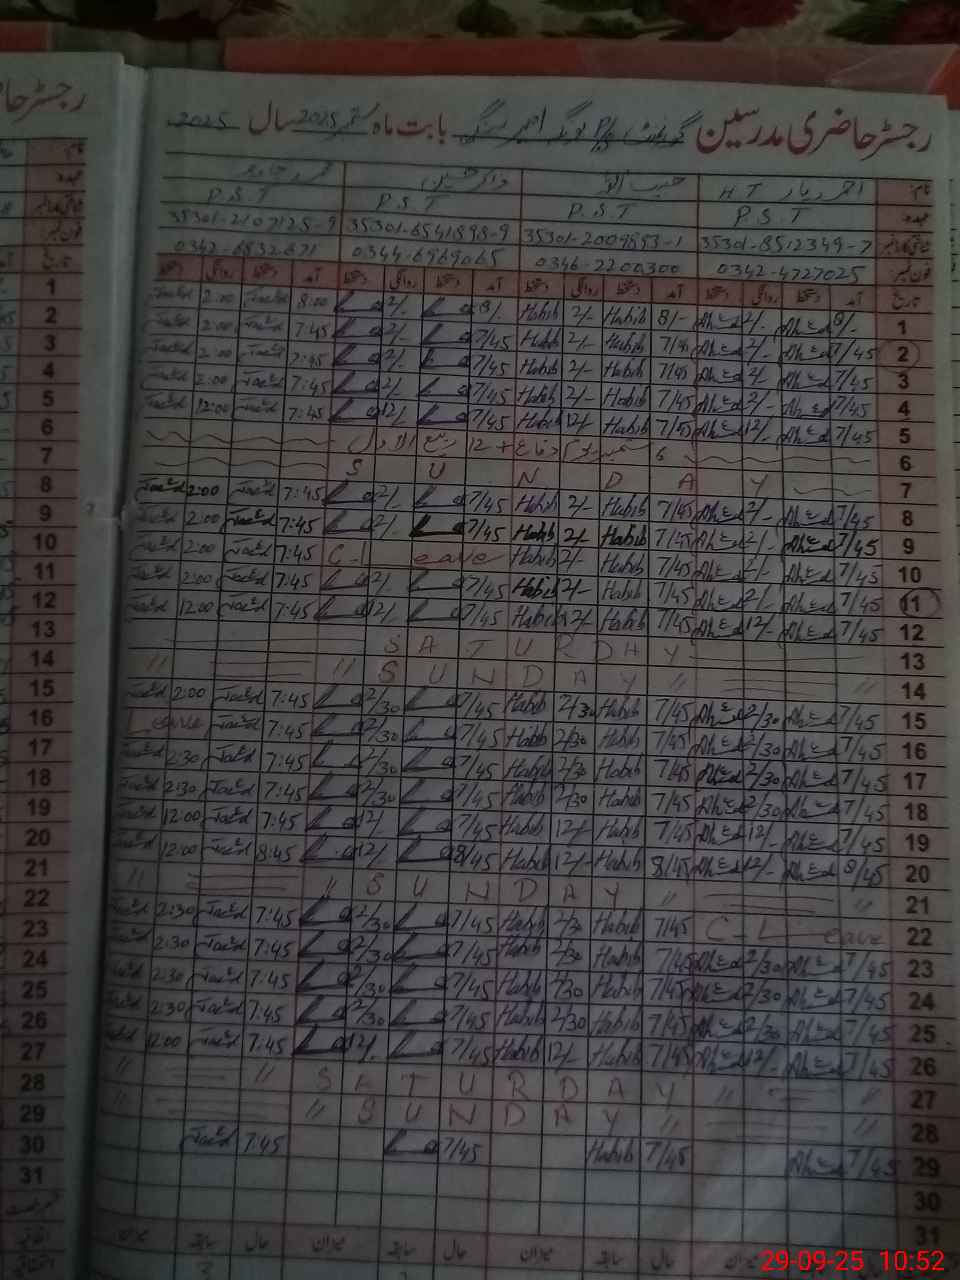 رجسٹر حاضری مدرسین گورنمنٹ P/S بابت ماہ ستمبر 2025 سال 2025
نام: H T حبیب اللہ
عہدہ P.S.T P.S.T P.S.T P.S.T
شناختی کارڈ نمبر 35301-8512349-7 35301-2009893-1 35301-6541898-9 35301-2107125-9
فون نمبر: 0342-4727025 0346-2200300 0344-6969065 0342-6832671
تاریخ آمد دستخط روانگی دستخط آمد دستخط روانگی دستخط آمد دستخط روانگی دستخط آمد دستخط روانگی دستخط
1 8/- Ahmed 2/- Ahmed 8/- Habib 2/- Habib 8/- 2/- 8:00 Saeed 2:00 Saeed
2 7/45 Ahmed 2/- Ahmed 7/45 Habib 2/- Habib 7/45 2/- 7:45 Saeed 2:00 Saeed
3 7/45 Ahmed 2/- Ahmed 7/45 Habib 2/- Habib 7/45 2/- 7:45 Saeed 2:00 Saeed
4 7/45 Ahmed 2/- Ahmed 7/45 Habib 2/- Habib 7/45 2/- 7:45 Saeed 2:00 Saeed
5 7/45 Ahmed 12/- Ahmed 7/45 Habib 12/- Habib 7/45 12/- 7:45 Saeed 12:00 Saeed
6 6 ستمبر یوم دفاع + 12 ربیع الاول
7 S U N D A Y
8 7/45 Ahmed 2/- Ahmed 7/45 Habib 2/- Habib 7/45 2/- 7:45 Saeed 2:00 Saeed
9 7/45 Ahmed 2/- Ahmed 7/45 Habib 2/- Habib 7/45 2/- 7:45 Saeed 2:00 Saeed
10 7/45 Ahmed 2/- Ahmed 7/45 Habib 2/- Habib C-Leave 7:45 Saeed 2:00 Saeed
11 7/45 Ahmed 2/- Ahmed 7/45 Habib 2/- Habib 7/45 2/- 7:45 Saeed 2:00 Saeed
12 7/45 Ahmed 12/- Ahmed 7/45 Habib 12/- Habib 7/45 12/- 7:45 Saeed 12:00 Saeed
13 S A T U R D A Y
14 " S U N D A Y " "
15 7/45 Ahmed 2/30 Ahmed 7/45 Habib 2/30 Habib 7/45 2/30 7:45 Saeed 2:00 Saeed
16 7/45 Ahmed 2/30 Ahmed 7/45 Habib 2/30 Habib 7/45 2/30 7:45 Saeed Leave
17 7/45 Ahmed 2/30 Ahmed 7/45 Habib 2/30 Habib 7/45 2/30 7:45 Saeed 2:30 Saeed
18 7/45 Ahmed 2/30 Ahmed 7/45 Habib 2/30 Habib 7/45 2/30 7:45 Saeed 2:30 Saeed
19 7/45 Ahmed 12/- Ahmed 7/45 Habib 12/- Habib 7/45 12/- 7:45 Saeed 12:00 Saeed
20 8/45 Ahmed 12/- Ahmed 8/45 Habib 12/- Habib 8/45 12/- 8:45 Saeed 12:00 Saeed
21 " " S U N D A Y " "
22 C-Leave 7/45 Habib 2/30 Habib 7/45 2/30 7:45 Saeed 2:30 Saeed
23 7/45 Ahmed 2/30 Ahmed 7/45 Habib 2/30 Habib 7/45 2/30 7:45 Saeed 2:30 Saeed
24 7/45 Ahmed 2/30 Ahmed 7/45 Habib 2/30 Habib 7/45 2/30 7:45 Saeed 2:30 Saeed
25 7/45 Ahmed 2/30 Ahmed 7/45 Habib 2/30 Habib 7/45 2/30 7:45 Saeed 2:30 Saeed
26 7/45 Ahmed 12/- Ahmed 7/45 Habib 12/- Habib 7/45 12/- 7:45 Saeed 12:00 Saeed
27 " " S A T U R D A Y " "
28 " " S U N D A Y " "
29 7/45 Ahmed 7/45 Habib 7/45 7:45 Saeed
30
31
حال سابقہ میزان حال سابقہ میزان حال سابقہ میزان
29-09-25 10:52